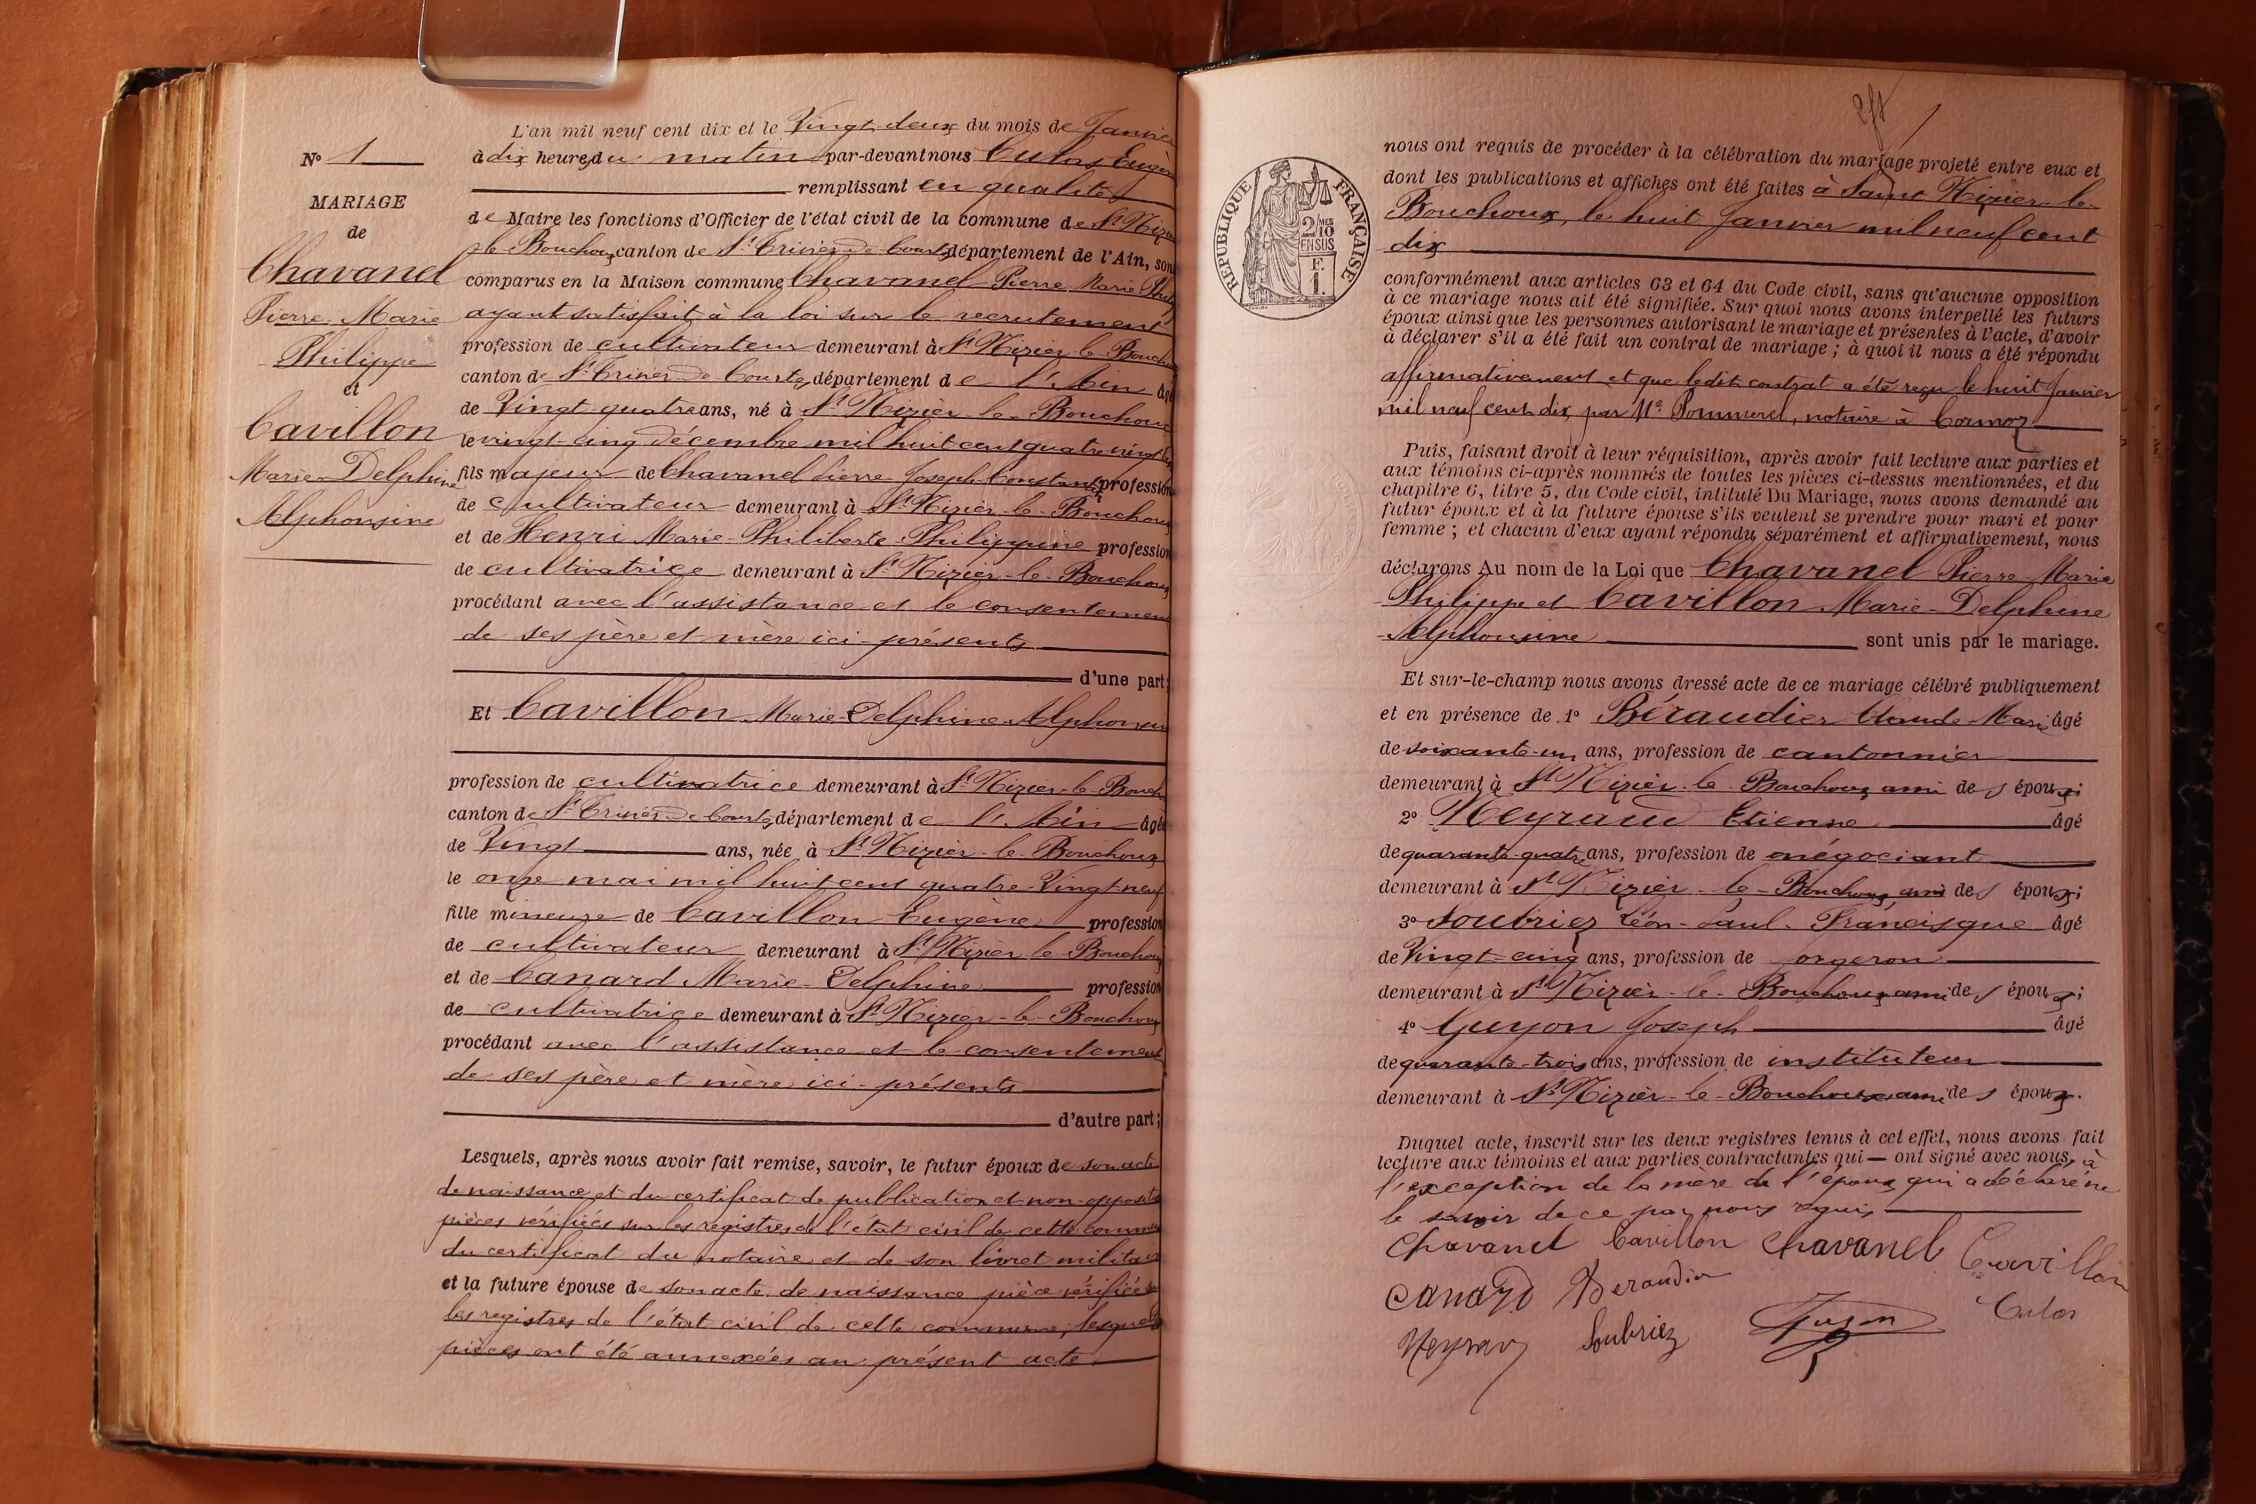 N° 1
MARIAGE
de
Chavanel
Pierre Marie
Philippe
et
Cavillon
Marie-Delphine
Alphonsine
L'an mil neuf cent dix et le Vingt-deux du mois de Janvier
à dix heures du matin par-devant nous Culas Eugène
remplissant en qualité
de Maire les fonctions d'Officier de l'état civil de la commune de St Nizier
le Bouchoux canton de St Trivier de Courtes département de l'Ain, sont
comparus en la Maison commune Chavanel Pierre Marie Philippe
ayant satisfait à la loi sur le recrutement
profession de cultivateur demeurant à St Nizier-le-Bouchoux
canton de St Trivier de Courtes département de l'Ain âgé
de Vingt quatre ans, né à St Nizier-le-Bouchoux
le vingt-cinq décembre mil huit cent quatre vingt
fils majeur de Chavanel Pierre Joseph Constant profession
de cultivateur demeurant à St Nizier-le-Bouchoux
et de Henri Marie-Philiberte-Philippine profession
de cultivatrice demeurant à St Nizier-le-Bouchoux
procédant avec l'assistance et le consentement
de ses père et mère ici-présents
d'une part;
Et Cavillon Marie-Delphine-Alphonsine
profession de cultivatrice demeurant à St Nizier-le-Bouchoux
canton de St Trivier de Courtes département de l'Ain âgée
de Vingt ans, née à St Nizier-le-Bouchoux
le onze mai mil huit cent quatre-Vingt-neuf
fille mineure de Cavillon Eugène profession
de cultivateur demeurant à St Nizier le Bouchoux
et de Canard Marie-Delphine profession
de cultivatrice demeurant à St Nizier-le-Bouchoux
procédant avec l'assistance et le consentement
de ses père et mère ici-présents
d'autre part;
Lesquels, après nous avoir fait remise, savoir, le futur époux de son acte
de naissance et du certificat de publication et non-opposition
pièces vérifiées sur les registres de l'état civil de cette commune
du certificat du notaire et de son livret militaire
et la future épouse de son acte de naissance pièce vérifiée sur
les registres de l'état civil de cette commune, lesquelles
pièces ont été annexées au présent acte
RÉPUBLIQUE FRANÇAISE
2/10 EN SUS
F.
1.
nous ont requis de procéder à la célébration du mariage projeté entre eux et
dont les publications et affiches ont été faites à Saint Nizier-le-
Bouchoux, le huit Janvier mil neuf cent
dix
conformément aux articles 63 et 64 du Code civil, sans qu'aucune opposition
à ce mariage nous ait été signifiée. Sur quoi nous avons interpellé les futurs
époux ainsi que les personnes autorisant le mariage et présentes à l'acte, d'avoir
à déclarer s'il a été fait un contrat de mariage; à quoi il nous a été répondu
affirmativement et que ledit contrat a été reçu le huit Janvier
mil neuf cent dix par Me Pommerel, notaire à Cormoz
Puis, faisant droit à leur réquisition, après avoir fait lecture aux parties et
aux témoins ci-après nommés de toutes les pièces ci-dessus mentionnées, et du
chapitre 6, titre 5, du Code civil, intitulé Du Mariage, nous avons demandé au
futur époux et à la future épouse s'ils veulent se prendre pour mari et pour
femme; et chacun d'eux ayant répondu séparément et affirmativement, nous
déclarons Au nom de la Loi que Chavanel Pierre Marie
Philippe et Cavillon Marie-Delphine
Alphonsine sont unis par le mariage.
Et sur-le-champ nous avons dressé acte de ce mariage célébré publiquement
et en présence de 1° Béraudier Claude-Marie âgé
de soixante-un ans, profession de cantonnier
demeurant à St Nizier-le-Bouchoux ami des époux;
2° Meyraud Etienne âgé
de quarante-quatre ans, profession de négociant
demeurant à St Nizier-le-Bouchoux, ami des époux;
3° Soubriez Léon-Paul-Francisque âgé
de Vingt-cinq ans, profession de forgeron
demeurant à St Nizier-le-Bouchoux ami des époux;
4° Guyon Joseph âgé
de quarante-trois ans, profession de instituteur
demeurant à St Nizier-le-Bouchoux ami des époux.
Duquel acte, inscrit sur les deux registres tenus à cet effet, nous avons fait
lecture aux témoins et aux parties contractantes qui — ont signé avec nous, à
l'exception de la mère de l'époux qui a déclaré ne
le savoir de ce par nous requis
Chavanel Cavillon Chavanel Cavillon
Canard Beraudier
Culas
Meyraud Soubriez Guyon